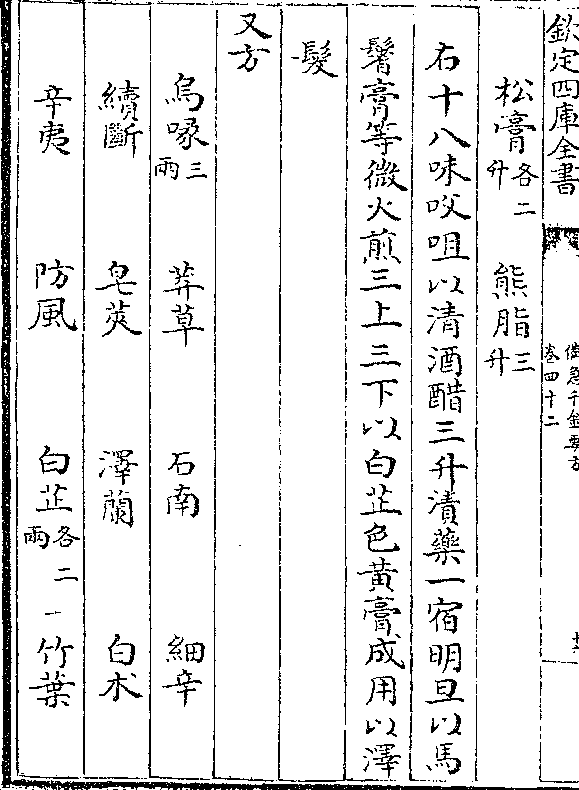 欽定四庫全書
備急千金要方
卷四十二
松膏各二升 熊脂三升
右十八味㕮咀以清酒醋三升漬藥一宿明旦以馬
䰇膏等微火煎三上三下以白芷色黃膏成用以澤
髮
又方
烏喙三兩 莽草 石南 細辛
續斷 皂莢 澤蘭 白朮
辛夷 防風 白芷各二兩 竹葉